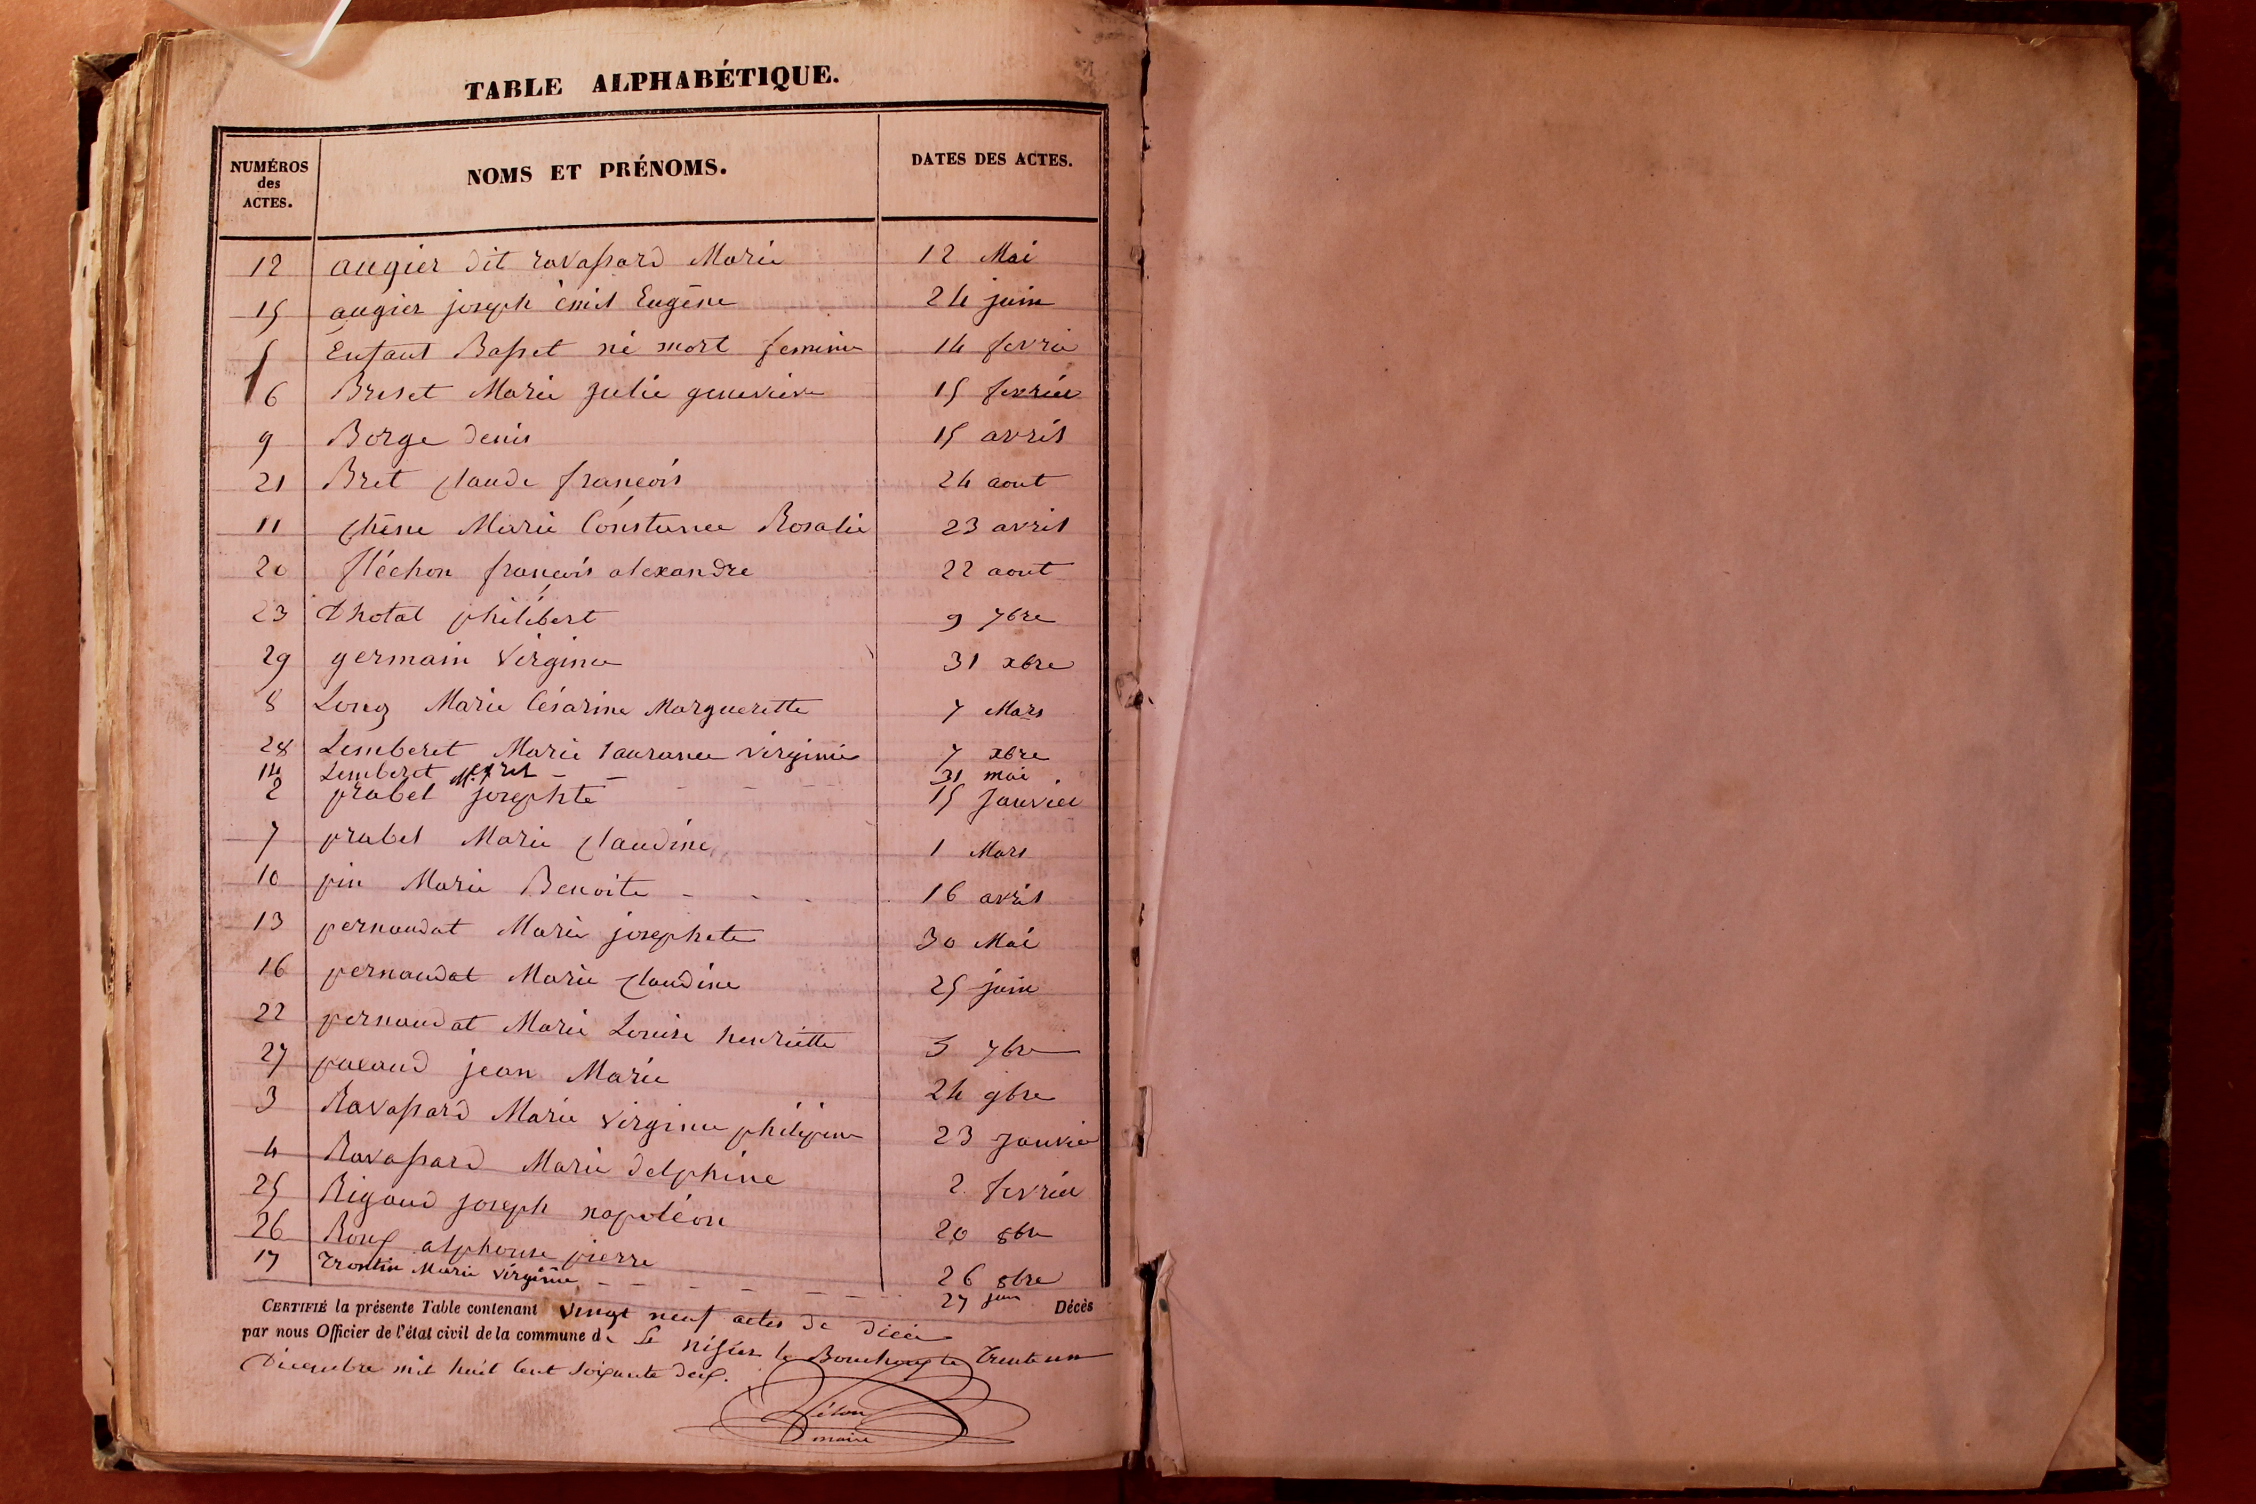 TABLE ALPHABÉTIQUE.
NUMÉROS des ACTES. NOMS ET PRÉNOMS. DATES DES ACTES.
12 augier dit ravassard Marie 12 Mai
15 augier joseph émil Eugène 24 juin
5 Enfant Basset né mort feminin 14 fevrie
6 Breset Marie julie genevieve 15 fevrier
9 Borge denis 15 avril
21 Bret claude françois 24 aout
11 chêne Marie Constance Rosalie 23 avril
20 fléchon françois alexandre 22 aout
23 Thotal philibert 9 7bre
29 germain virginie 31 xbre
8 Marie Césarine Marguerette 7 Mars
28 Lemberet Marie laurance virginie 7 xbre
14 Lemberet 31 mai
2 prabel josephte 15 Janvier
7 prabel Marie claudine 1 Mars
10 pin Marie Benoite 16 avril
13 pernaudat Marie josephete 30 Mai
16 pernaudat Marie claudine 25 juin
22 pernaudat Marie Louise henriette 5 7bre
27 pacaud jean Marie 24 9bre
3 Ravassard Marie virginie philipine 23 Janvie
4 Ravassard Marie delphine 2 fevrier
25 Rigaud joseph napoléon 20 8bre
26 Roux alphonse pierre 26 8bre
17 Trontin Marie virginie 27 juin
CERTIFIÉ la présente Table contenant vingt neuf actes de décès Décès
par nous Officier de l'état civil de la commune de St nisier le Bouchoux le trente un
Decembre mil huit cent soixante deux.
maire